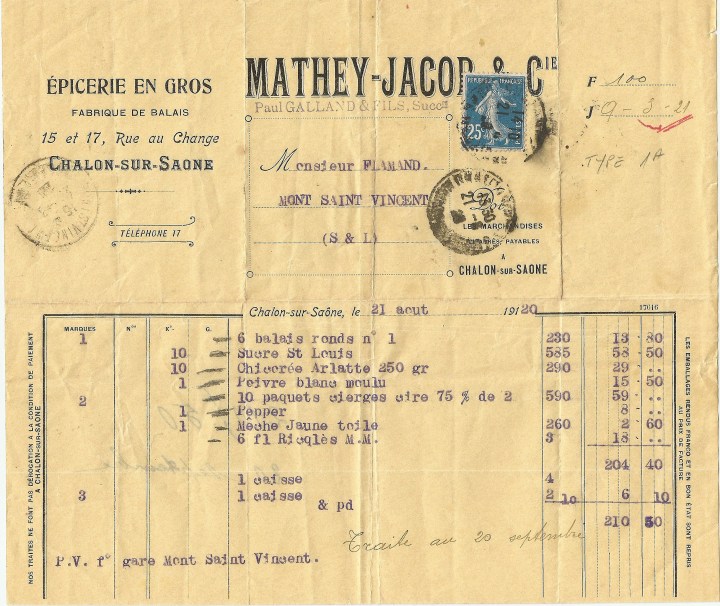 ÉPICERIE EN GROS
FABRIQUE DE BALAIS
15 et 17, Rue au Change
CHALON-SUR-SAONE
TÉLÉPHONE 17
MATHEY-JACOB & CIE
Paul GALLAND & FILS, Succrs
25
POSTES
Monsieur FLAMAND.
MONT SAINT VINCENT
(S & L)
Doit
LES MARCHANDISES
CI-APRÈS, PAYABLES
A
CHALON-SUR-SAONE
F 100
J 9-3-21
TYPE 1A
Chalon-sur-Saône, le 21 aout 1920
17016
MARQUES Nos Ks G.
1 6 balais ronds n° 1 230 13 80
10 Sucre St Louis 585 58 50
10 Chicorée Arlatte 250 gr 290 29 ..
1 Poivre blanc moulu 15 50
2 10 paquets cierges cire 75 % de 2 590 59 ..
1 Pepper 8 ..
1 Mèche Jaune toile 260 2 60
6 fl Ricqlès M.M. 3 18 ..
204 40
1 caisse 4
3 1 caisse 2 10 6 10
& pd
210 50
Traite au 20 septembre
P.V. f° gare Mont Saint Vincent.
NOS TRAITES NE FONT PAS DÉROGATION A LA CONDITION DE PAIEMENT
A CHALON-SUR-SAONE
LES EMBALLAGES RENDUS FRANCO ET EN BON ÉTAT SONT REPRIS
AU PRIX DE FACTURE